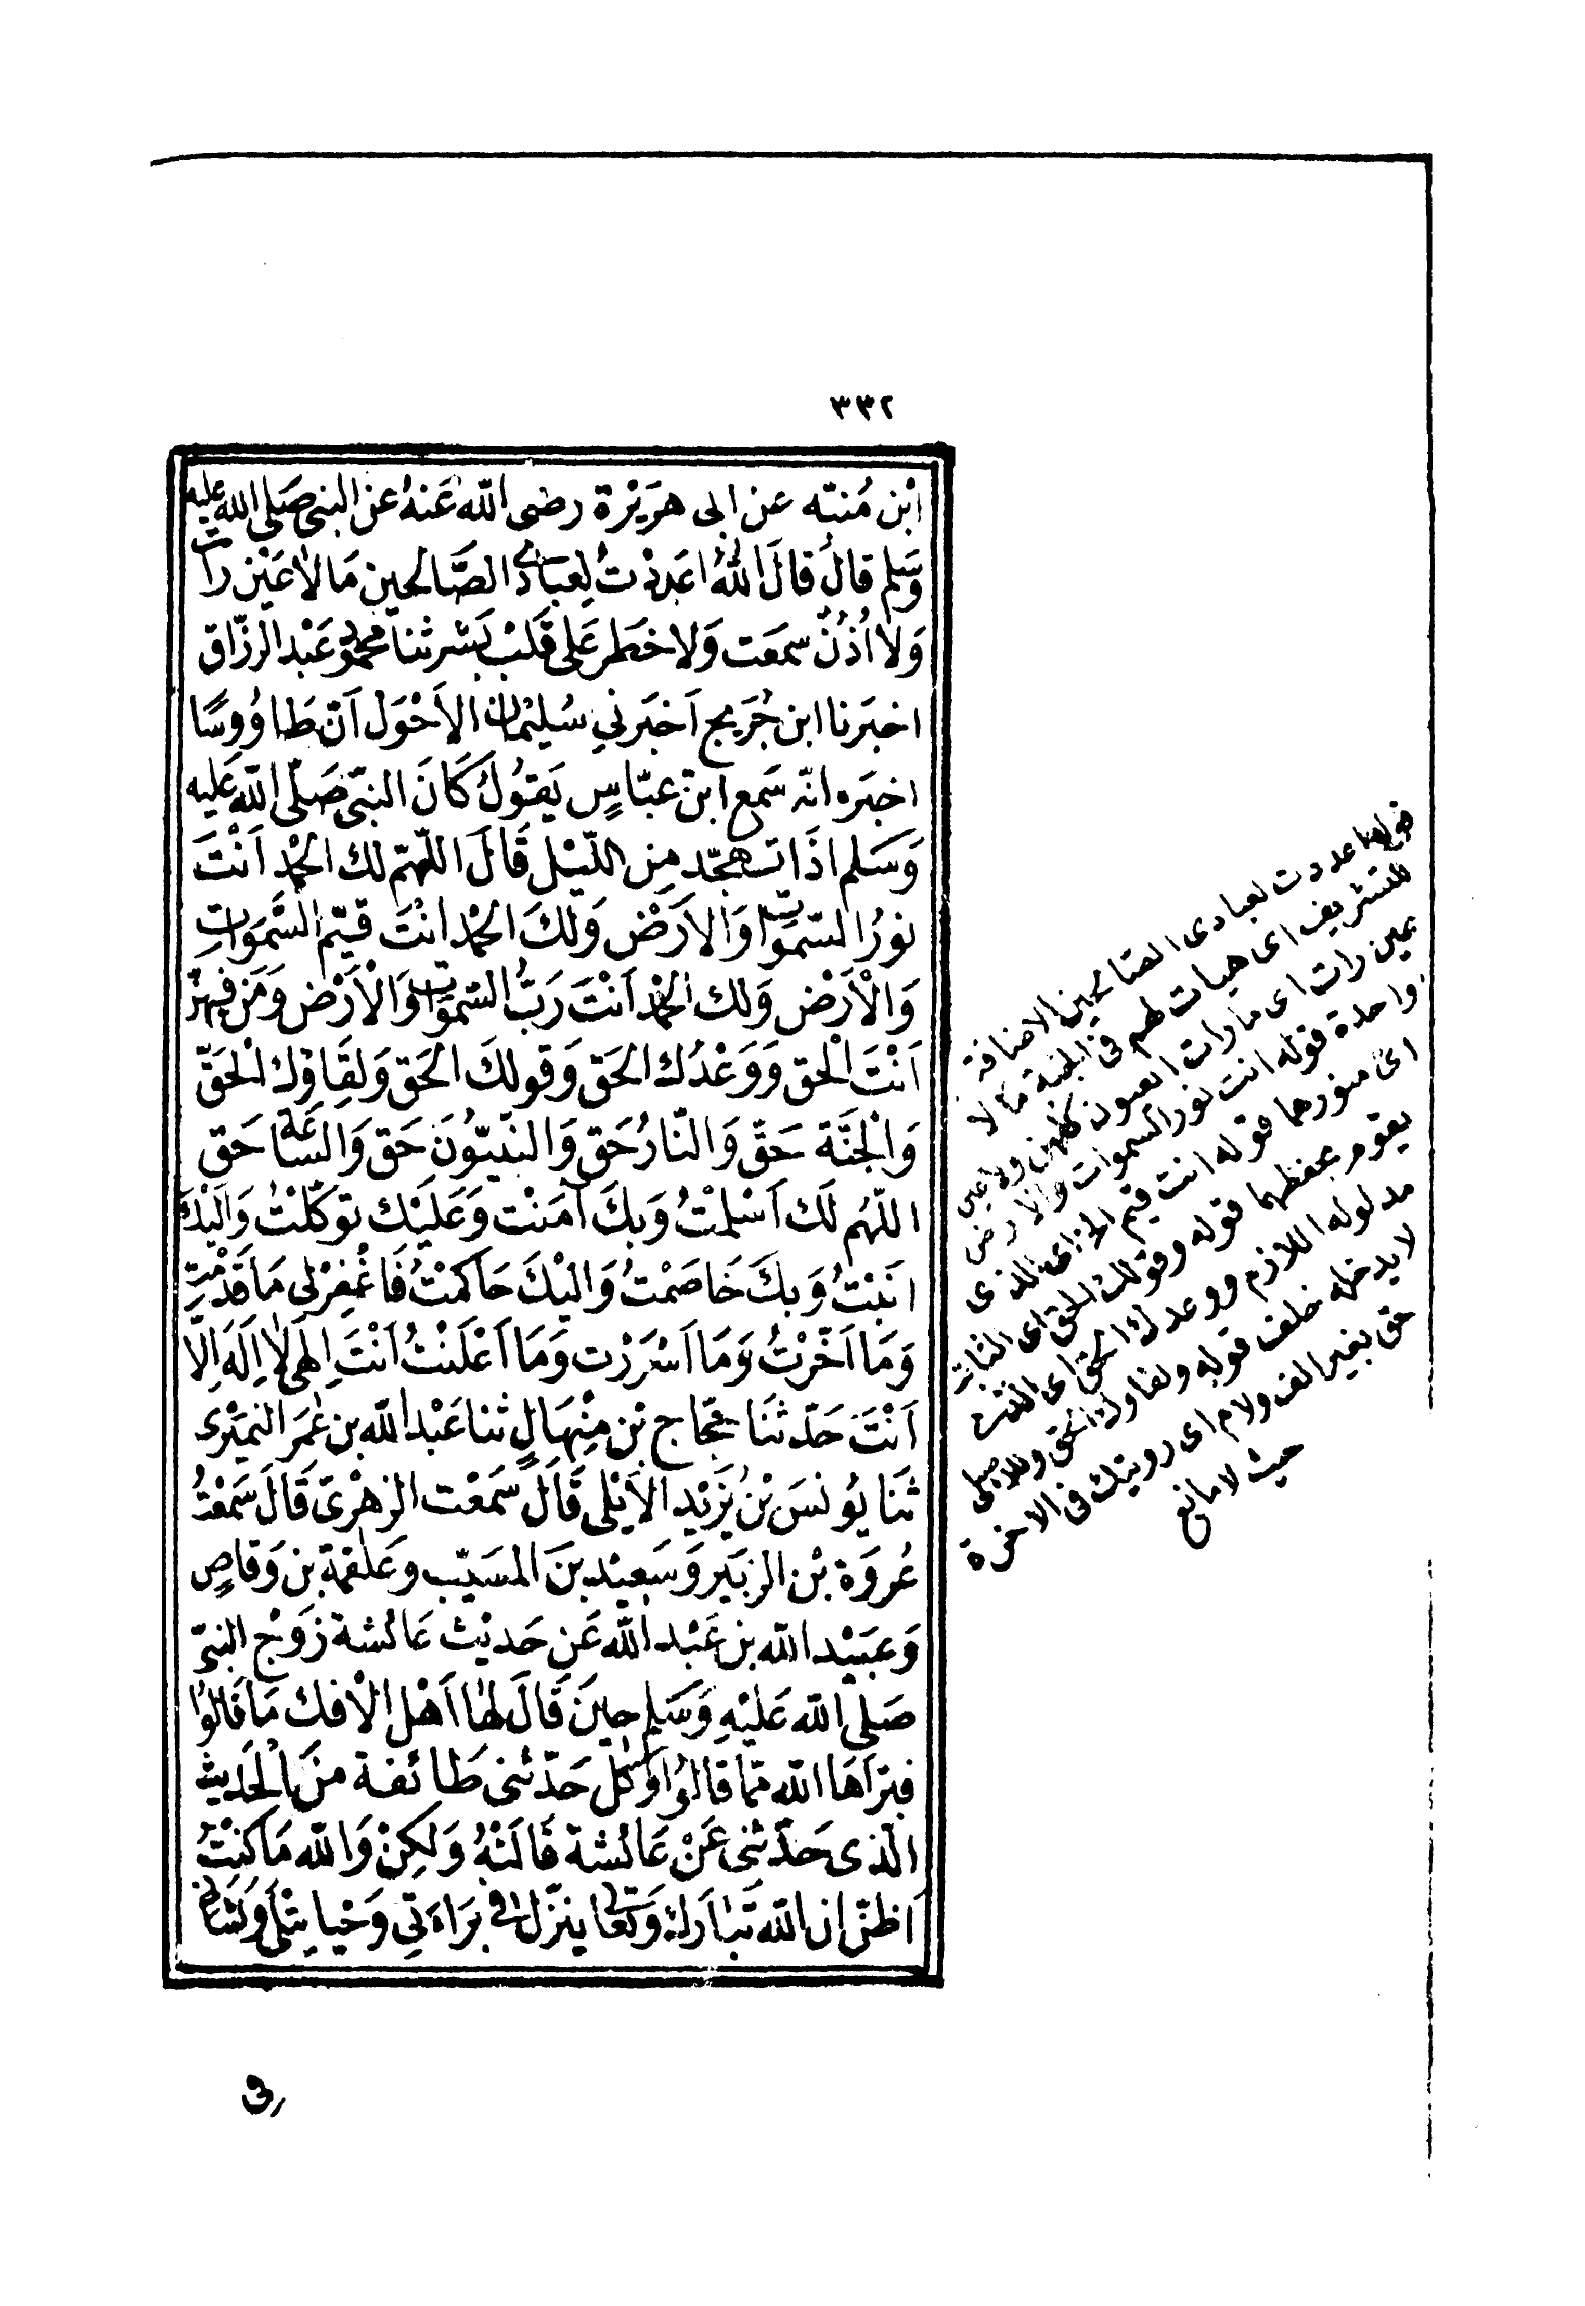 ٣٣٢
ابْن مُنبّه عن ابى هرَيْرة رضى الله عَنهُ عن النبى صَلى الله عليه
وَسَلم قال قالَ اللهُ اعَددْتُ لِعبَادى الصَّالحين مَا لا عَيْن رات
وَلا اُذُنٌ سمعَت وَلا خطَر عَلى قَلبْ بَشر ثنا محمود عَبْد الرزّاق
اخبَرنا ابن جُرَيج اَخبَرني سُليْمان الاَحْوَل اَنّ طَاوُوسًا
اخبَره انّه سَمع ابنَ عبّاسٍ يَقوُلُ كَانَ النبّى صَلّى الله عَليه
وَسَلم اذَا تهجّد مِن اللّيْل قَالَ اللّهمّ لك الحمْد اَنْتَ
نورُ السّموَات وَالاَرَضْ وَلكَ الحمْد انْتَ قيّم السَّمَوَاتِ
وَالْاَرَضْ وَلك الحمْد اَنْتَ رَبُّ السّموَات وَالْاَرَضْ وَمَن فيهنّ
اَنْتَ الْحق وَوَعْدُك الحَق وَقولكَ الحَق وَلقَاؤك الْحَقّ
وَالْجَنَّة حَقّ وَالنّارُ حَق وَالنبيّوُنَ حَق وَالسّاعَة حَق
اللّهُم لَك اَسْلمْتُ وَبكَ اۤمَنْت وَعَلَيْك توَكّلْتُ وَاليْكَ
انَبْتُ وَبكَ خَاصَمْتُ وَاليْكَ حَاكمْتُ فَاغْفِرْلى مَا قَدّمْت
وَمَا اَخّرْتُ وَمَا اَسْرَرْت وَمَا اَعْلَنْتُ اَنْتَ اِلهَى لَا اِلَهَ اِلّا
اَنْتَ حَدّثنَا حجّاج بْن مِنْهَالٍ ثنا عَبْد الله بن عُمَر النميَرْى
ثَنَا يُونسَ بْنُ يَزيْد الاَيْلى قَالَ سَمعْت الزهْرىّ قَالَ سَمَعْتُ
عُروَة بْن الزبَير وَسَعِيْد بنَ المسَيّب وعَلقمة بن وَقاصٍ
وَعبَيْد الله بن عَبْد الله عَن حَديْث عَائشة زَوْج النبىّ
صَلى الله عَليْهِ وَسَلم حينَ قَالَ لهَا اَهْل الْافك مَا قَالوُا
فبرّاهَا الله ممّا قالوُا وَكلّ حَدّثنى طَائفة منَ الْحَديث
الّذى حَدّثنى عَنْ عَائشة قَالتْ وَلكِنْ وَالله مَا كنْتُ
اَظنّ ان الله تَبارك وَتعَالى ينزّل فى بَراءَتي وَحْيا يتْلَى وَلشَانى
قوله اعددت لعبادى الصالحين الاضافة
للتشريف اى هيات لهم فى الجنة ما لا
عين رات اى ما رات العيون كلهن ولا عين
واحدة قوله انت نور السموات والارض
اى منورهما قوله انت قيم الخ اى الذى
يقوم بحفظهما قوله وقولك الحق اى الثابت
مدلوله اللازم ووعدك الحق اى
لا يدخله خلف قوله ولقاوك الحق وللاصيلى
حق بغير الف ولام اى رويتك فى الاخرة
حيث لا مانع